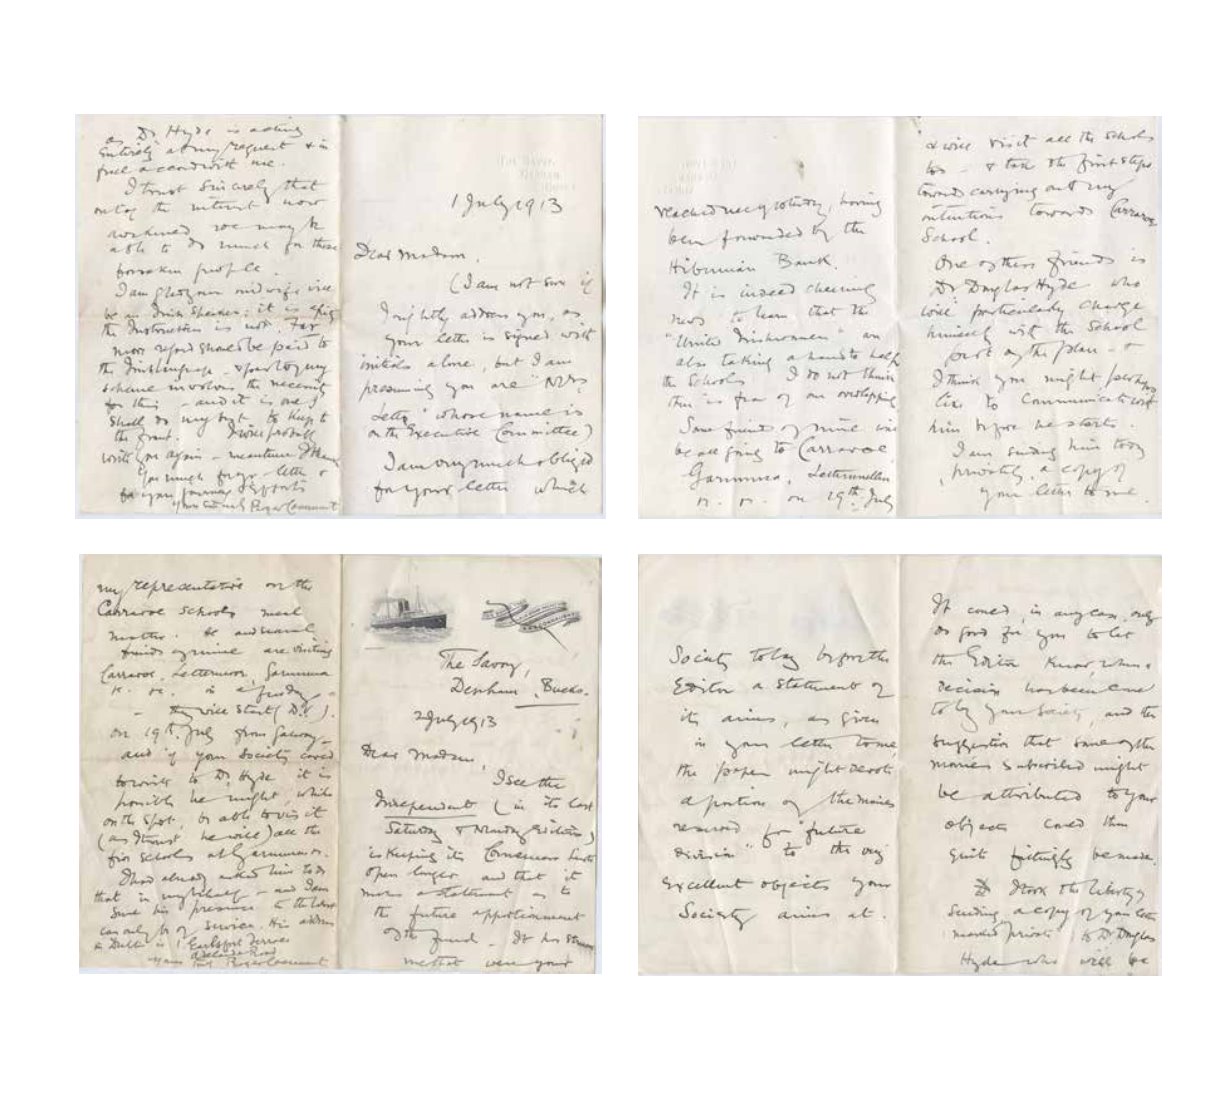 1 July 1913
Dear Madam,
(I am not sure if
I rightly address you, as
your letter is signed with
initials alone, but I am
presuming you are "Mrs
" whose name is
on the Executive Committee)
I am very much obliged
for your letter which
reached me yesterday, having
been forwarded by the
Hibernian Bank.
It is indeed cheering
news to learn that the
"United Irishwomen" are
also taking a hand to help
the Schools I do not think
there is fear of our overlapping
Some friends of mine will
be all going to Carraroe
Garumna, Lettermullen
on 19th July
& will visit all the schools
too - & take the first steps
toward carrying out my
intentions towards Carraroe
School.
One of these friends is
Dr Douglas Hyde who
will particularly charge
himself with the School
part of the plan - &
I think you might perhaps
like to communicate with
him before he starts.
I am sending him today
privately, a copy of
your letter to me.
as Dr Hyde is acting
entirely at my request & in
full accord with me.
I trust sincerely that
out of the interest now
awakened we may be
able to do much for those
forsaken people.
I am glad your midwife will
be an Irish Speaker: it is a pity
the Instructress is not. Far
more regard should be paid to
the Irish language - & part of my
scheme involves the necessity
for this - and it is one I
shall do my best to keep to
the front. I will probably
write you again - meantime thank
you much for your letter &
for your
Yours sincerely Roger Casement
The Savoy,
Denham, Bucks.
2 July 1913
Dear Madam,
I see the
Independent (in its last
Saturday & Monday Editions)
is keeping its Connemara lists
open longer and that it
makes a statement as to
the future apportionment
of the fund - It has struck
me that were your
Society to lay before the
Editor a statement of
its aims, as given
in your letter to me
the paper might devote
a portion of the monies
reserved for "future
division" to the very
excellent objects your
Society aims at.
It could, in any case, only
do good for you to let
the Editor know, when a
decision has been come
to by your Society, and the
suggestion that some of the
monies subscribed might
be attributed to your
objects could then
quite fittingly be made.
I took the liberty of
sending a copy of your letter
marked private to Dr Douglas
Hyde who will be
my representative on the
Carraroe schools meal
matter. He and several
friends of mine are visiting
Carraroe, Lettermore, Garumna
in a few days
- they will start (D.V.)
on 19th July from Galway -
and if your Society cared
to write to Dr Hyde it is
possible he might, while
on the spot, be able to visit
(as I trust he will) all the
five schools at Garumna
I had already asked him to do
that in my behalf - and I am
sure his presence
can only be of service. His address
in Dublin is 1 Earlsfort Terrace
Adelaide Road
Yours truly Roger Casement